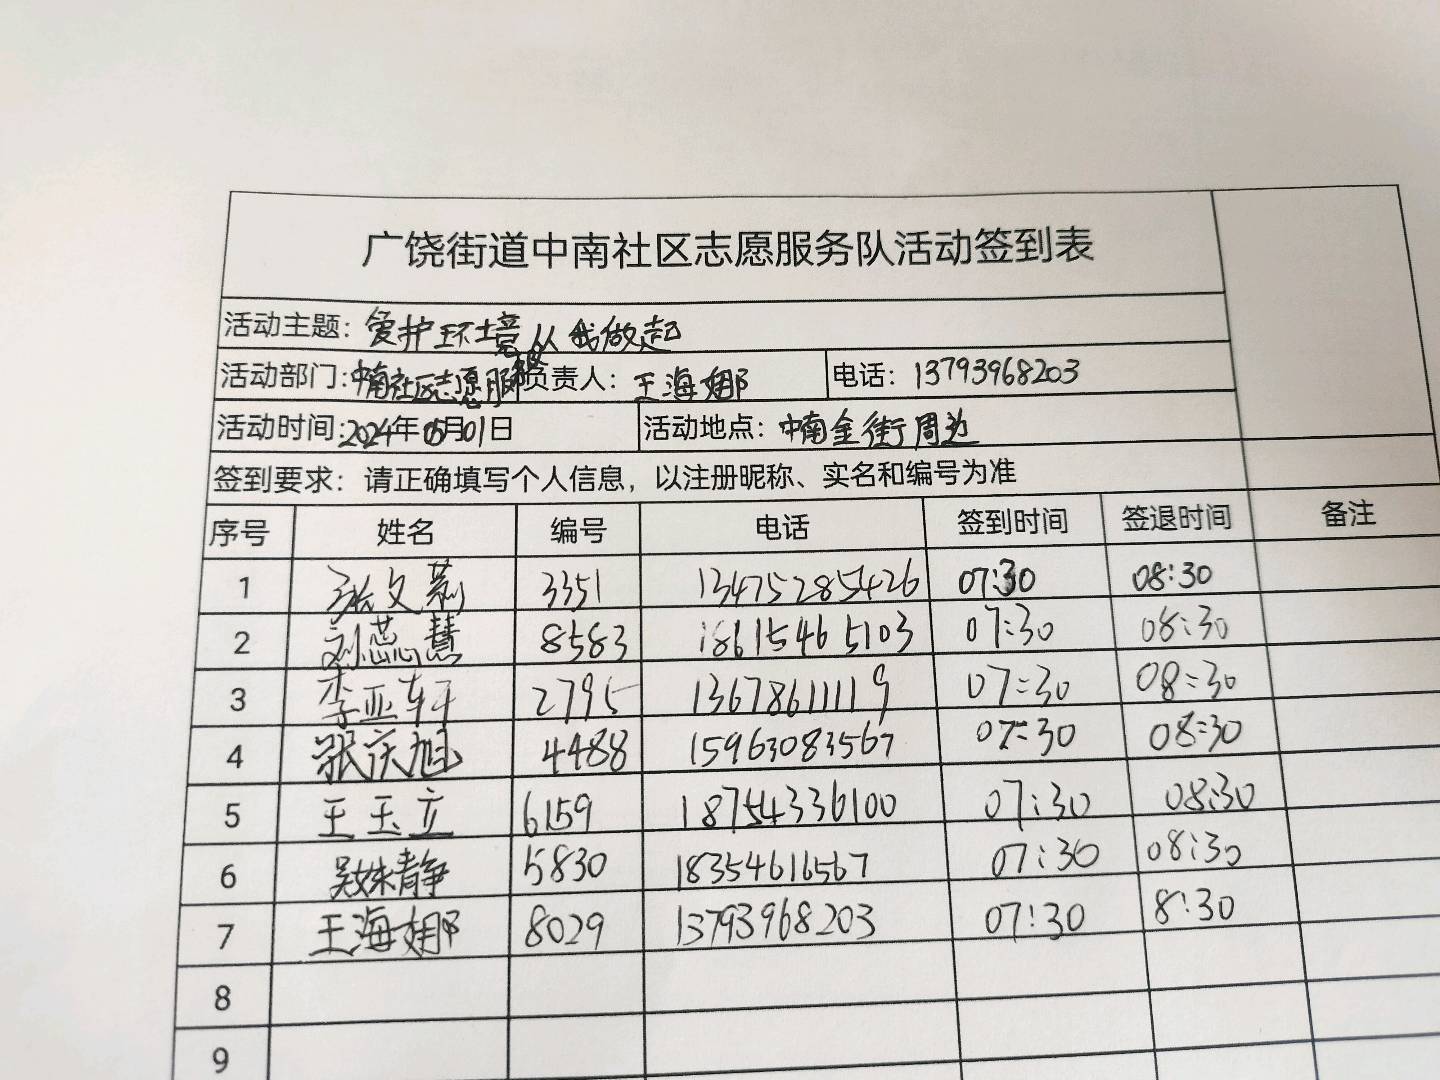 广饶街道中南社区志愿服务队活动签到表
活动主题：爱护环境从我做起
活动部门：中南社区志愿服务队 负责人：王海娜 电话：13793968203
活动时间：2024年05月01日 活动地点：中南金街周边
签到要求：请正确填写个人信息，以注册昵称、实名和编号为准
序号 姓名 编号 电话 签到时间 签退时间 备注
1 张文莉 3351 13475285426 07:30 08:30
2 刘蕊慧 8583 18615465103 07:30 08:30
3 李亚轩 2795 13678611119 07:30 08:30
4 张庆旭 4488 15963083567 07:30 08:30
5 王玉立 6159 18754336100 07:30 08:30
6 吴姝静 5830 18354616567 07:30 08:30
7 王海娜 8029 13793968203 07:30 8:30
8
9